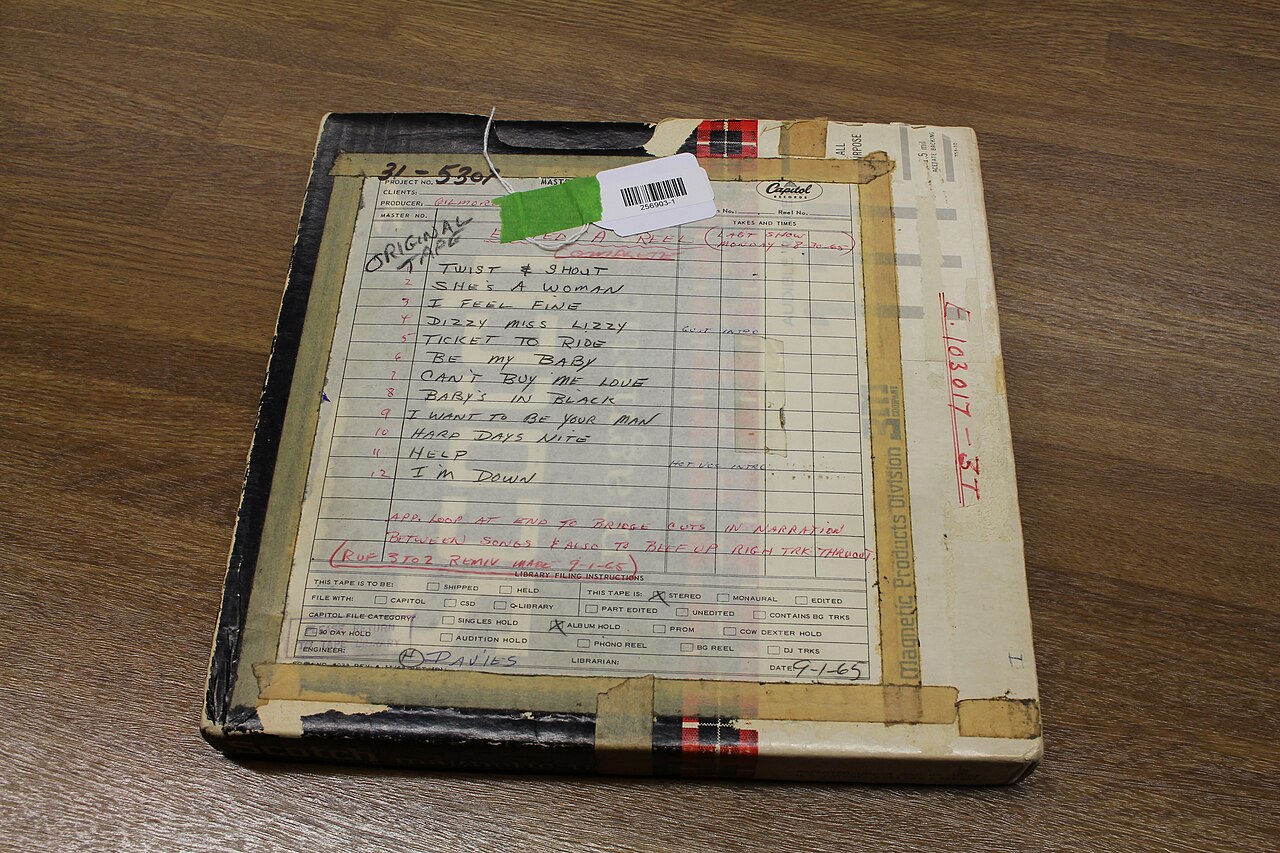 ALL
31-5301
PROJECT NO.
MAST
Capitol
RECORDS
CLIENTS:
PRODUCER: GILMORE
256903-1
No.: Reel No.
MASTER NO.
TAKES AND TIMES
ORIGINAL
TAPE
A REEL (LAST SHOW
MONDAY - 8-30-65)
COMPLETE
1 TWIST & SHOUT
2 SHE'S A WOMAN
3 I FEEL FINE
4 DIZZY MISS LIZZY GUIT INTRO
5 TICKET TO RIDE
6 BE MY BABY
7 CAN'T BUY ME LOVE
8 BABY'S IN BLACK
9 I WANT TO BE YOUR MAN
10 HARD DAYS NITE
11 HELP
12 I'M DOWN HOT VOC INTRO
APP. LOOP AT END TO BRIDGE CUTS IN NARRATION
BETWEEN SONGS & ALSO TO BEEF UP RIGH TRK THRUOUT.
(RUF 3 TO 2 REMIX MADE 9-1-65)
LIBRARY FILING INSTRUCTIONS
THIS TAPE IS TO BE: SHIPPED HELD THIS TAPE IS: STEREO MONAURAL EDITED
FILE WITH: CAPITOL CSD Q-LIBRARY PART EDITED UNEDITED CONTAINS BG TRKS
CAPITOL FILE CATEGORY: SINGLES HOLD ALBUM HOLD PROM COW DEXTER HOLD
30 DAY HOLD AUDITION HOLD PHONO REEL BG REEL DJ TRKS
ENGINEER: H DAVIES LIBRARIAN: DATE 9-1-65
1.5 mil
ACETATE BACKING
E.103017-3I
Magnetic Products Division 3M
COMPANY
I
Scotch